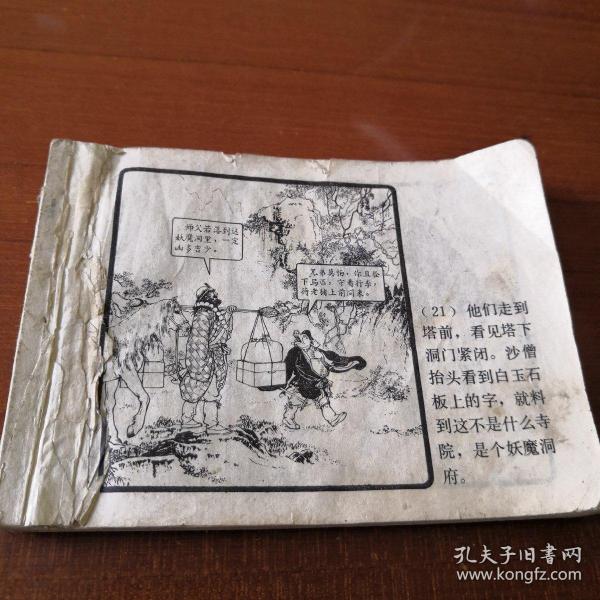 师父若落到这
妖魔洞里，一定
凶多吉少。
兄弟莫怕，你且拴
下马匹，守着行李，
待老猪上前问来。
（21）他们走到
塔前，看见塔下
洞门紧闭。沙僧
抬头看到白玉石
板上的字，就料
到这不是什么寺
院，是个妖魔洞
府。
孔夫子旧书网
www.kongfz.com